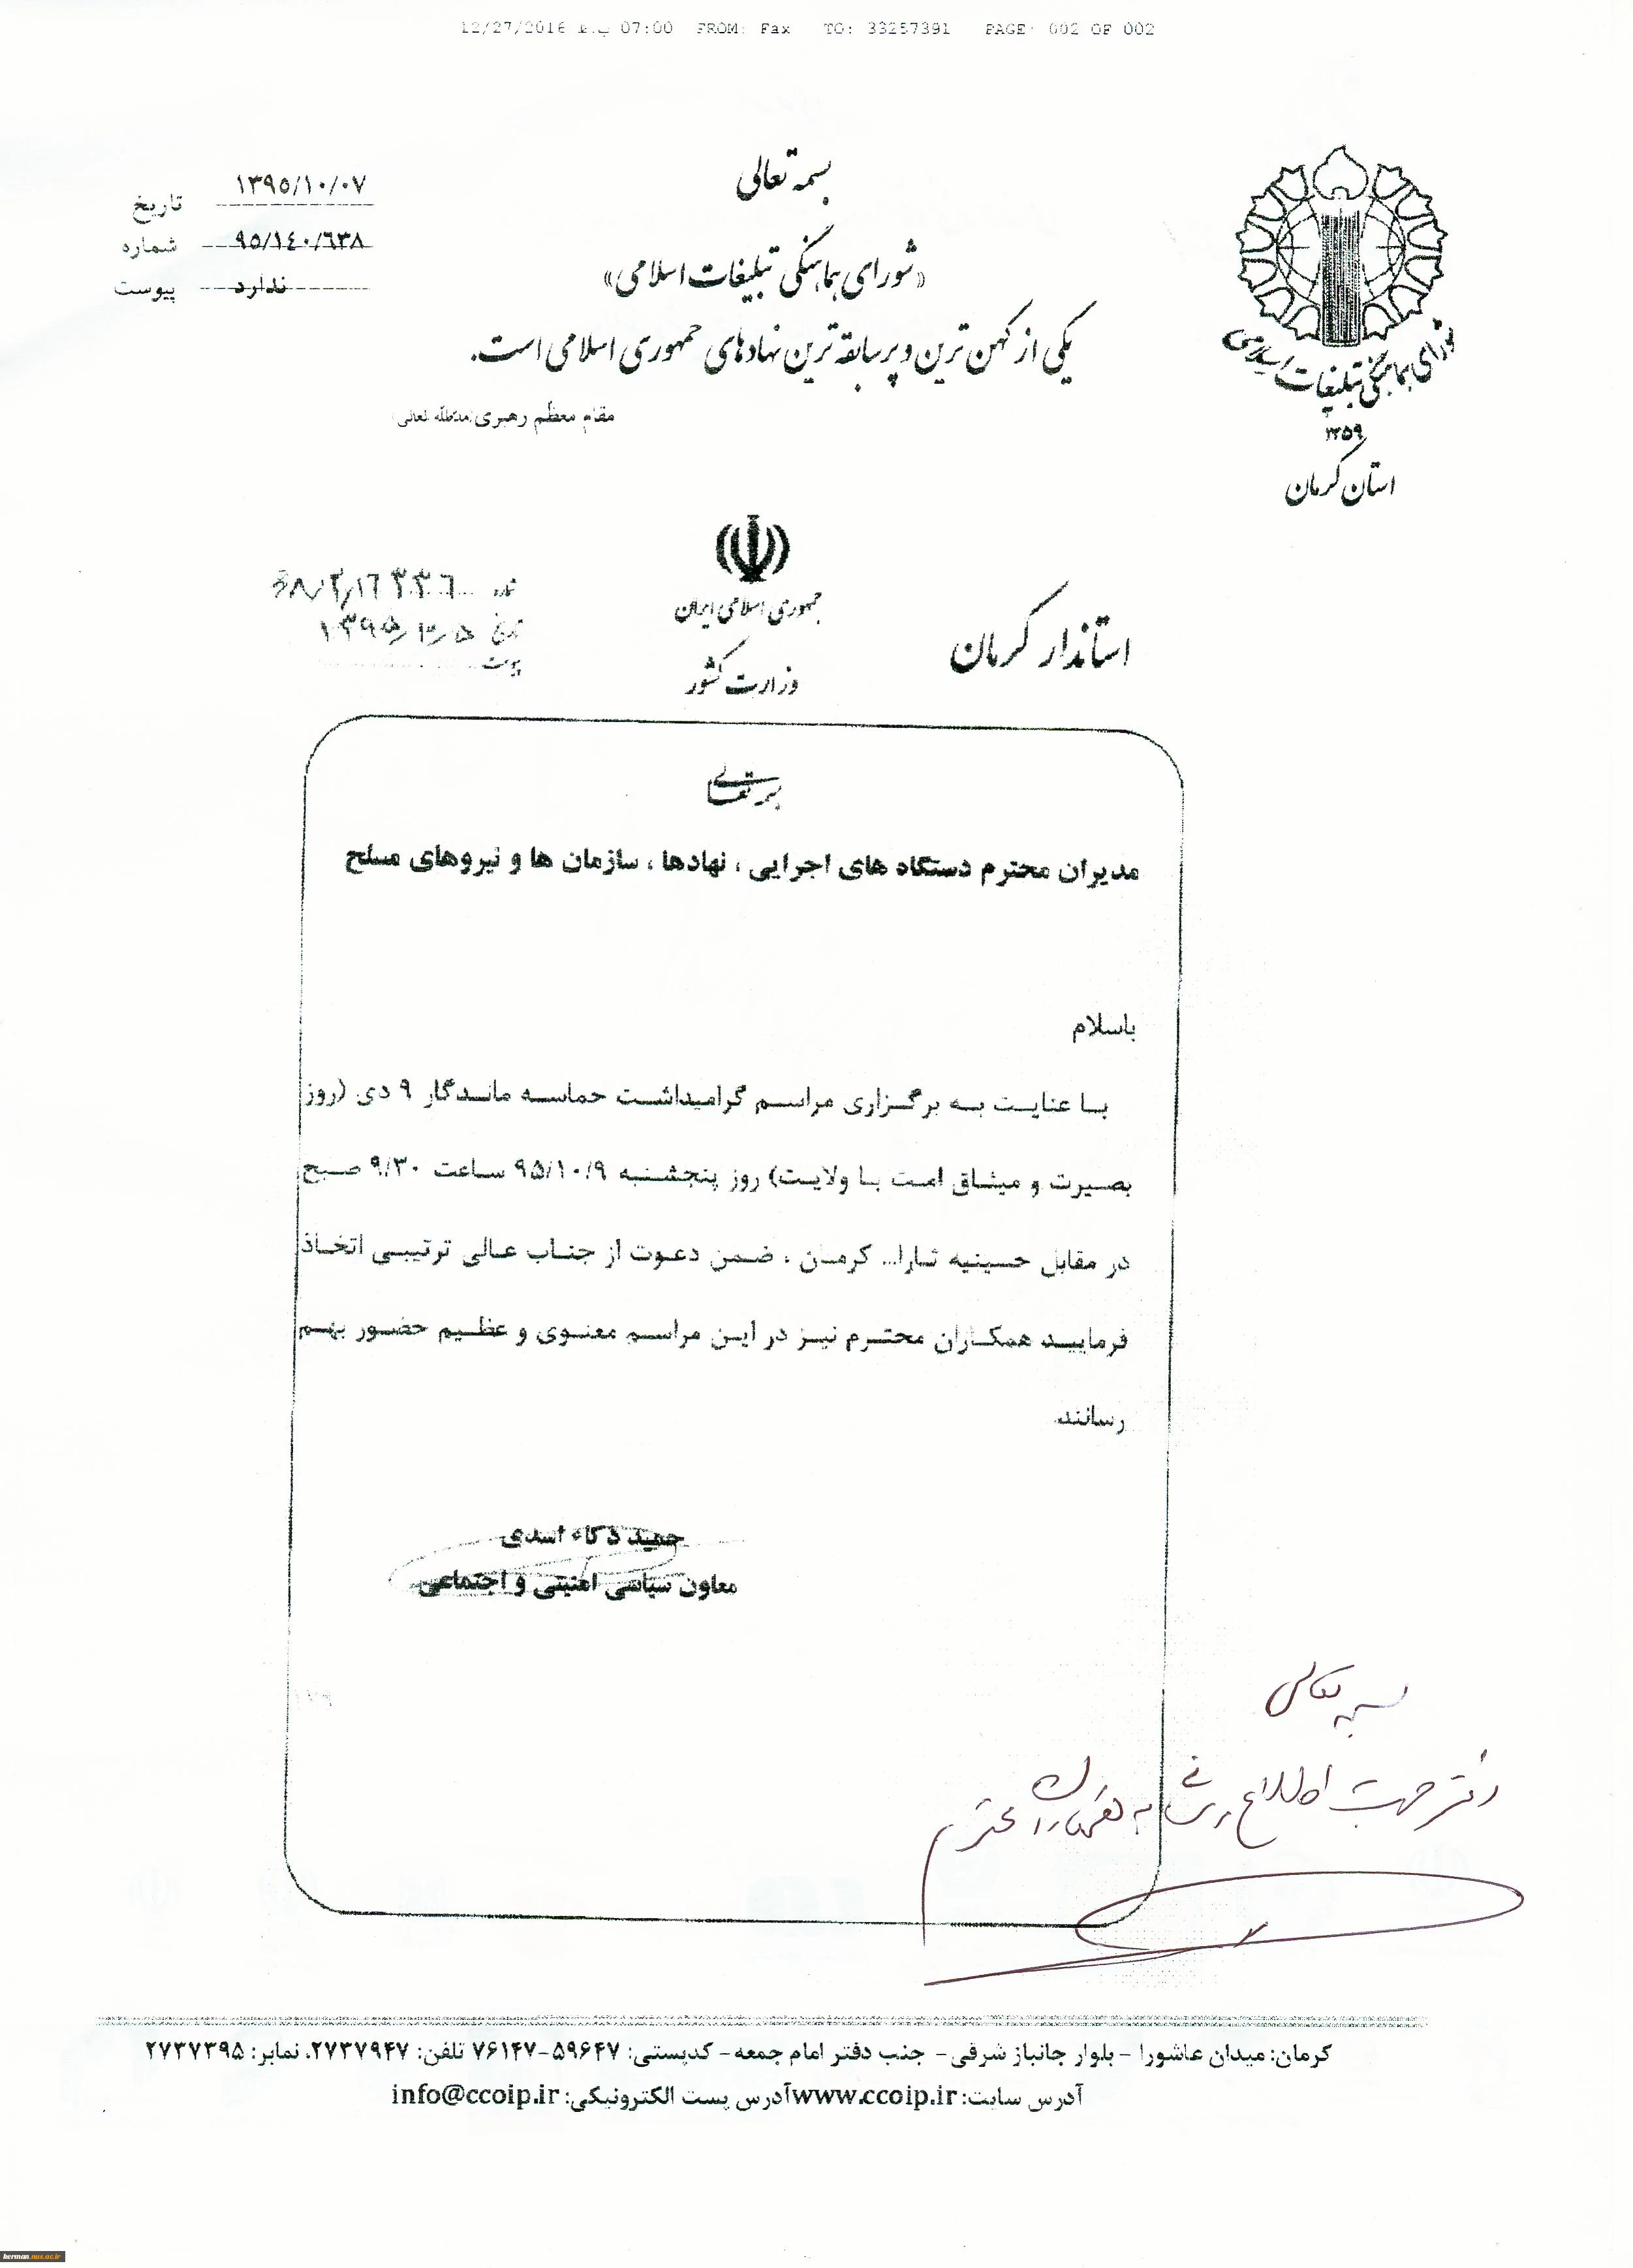 12/27/2016 ب.ظ 07:00 FROM: Fax TO: 33257391 PAGE: 002 OF 002
بسمه تعالی
«شورای هماهنگی تبلیغات اسلامی»
یکی از کهن ترین و پرسابقه ترین نهادهای جمهوری اسلامی است.
مقام معظم رهبری(مدظله تعالی)
شورای هماهنگی تبلیغات اسلامی
۱۳۵۹
استان کرمان
تاریخ ۱۳۹۵/۱۰/۰۷
شماره ۹۵/۱۴۰/۶۳۸
پیوست ندارد
جمهوری اسلامی ایران
وزارت کشور
استاندار کرمان
شماره
تاریخ
پیوست
مدیران محترم دستگاه های اجرایی ، نهادها ، سازمان ها و نیروهای مسلح
باسلام
با عنایت به برگزاری مراسم گرامیداشت حماسه ماندگار ۹ دی (روز
بصیرت و میثاق امت با ولایت) روز پنجشنبه ۹۵/۱۰/۹ ساعت ۹/۳۰ صبح
در مقابل حسینیه ثارا... کرمان ، ضمن دعوت از جناب عالی ترتیبی اتخاذ
فرمایید همکاران محترم نیز در این مراسم معنوی و عظیم حضور بهم
رسانند
حمید ذکاء اسدی
معاون سیاسی امنیتی و اجتماعی
بسمه تعالی
دفتر جهت اطلاع رسانی به همکاران محترم
کرمان: میدان عاشورا - بلوار جانباز شرقی- جنب دفتر امام جمعه- کدپستی: ۵۹۶۴۷-۷۶۱۴۷ تلفن: ۲۷۳۷۹۴۷. نمابر: ۲۷۳۷۳۹۵
آدرس سایت: www.ccoip.irآدرس پست الکترونیکی: info@ccoip.ir
kerman.nus.ac.ir